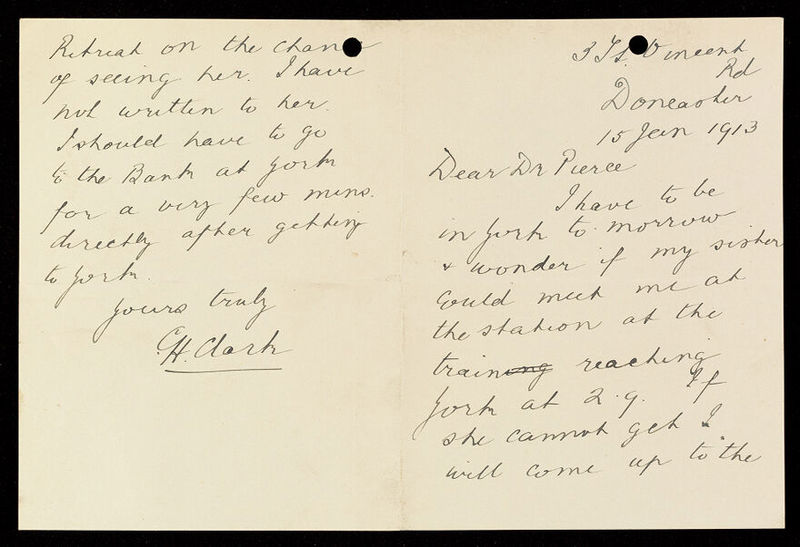 3 St. Vincent
Rd
Doncaster
15 Jan 1913
Dear Dr Pierce
I have to be
in York to-morrow
& wonder if my sister
could meet me at
the station at the
training reaching
York at 2.9. If
she cannot get I
will come up to the
Retreat on the chance
of seeing her. I have
not written to her.
I should have to go
to the Bank at York
for a very few mins.
directly after getting
to York.
Yours truly
Clark